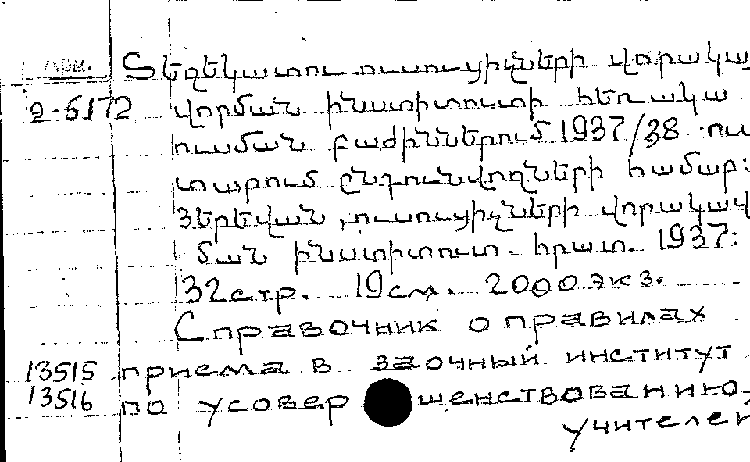 Տեղեկատու ուսուցիչների վորակա
2-5172 վորման ինստիտուտի հեռակա
ուսման բաժիններում 1937/38 ու
տարում ընդունվողների համար:
Յերեվան, ուսուցիչների վորակավ
ման ինստիտուտ հրատ. 1937:
32 стр. 19 см. 2000 экз.
Справочник о правилах
13515 приема в заочный институт
13516 по усовершенствованию
учителей